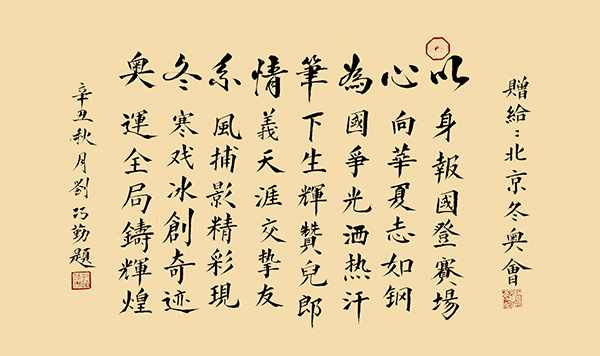 贈給：北京冬奧會
以身報國登賽場
心向華夏志如钢
為國爭光洒热汗
筆下生輝贊兒郎
情義天涯交挚友
系風捕影精彩現
冬寒戏冰創奇迹
奧運全局鑄輝煌
辛丑秋月劉巧勤題